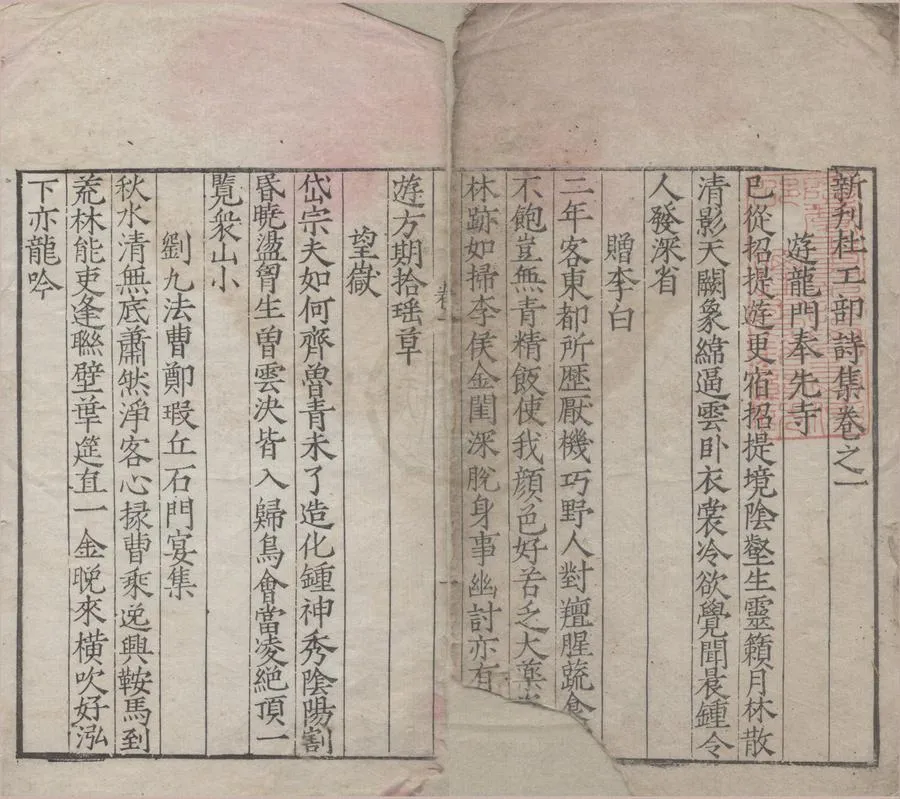 新刋杜工部詩集卷之一
遊龍門奉先寺
已從招提遊更宿招提境陰壑生靈籟月林散
清影天闕象緯逼雲卧衣裳冷欲覺聞晨鍾令
人發深省
贈李白
二年客東都所歷厭機巧野人對羶腥蔬食
不飽豈無青精飯使我顔色好苦乏大藥
林跡如掃李侯金閨深脫身事幽討亦有
遊方期拾瑶草
望嶽
岱宗夫如何齊魯青未了造化鍾神秀陰陽割
昬曉盪胷生曽雲決眥入歸鳥會當凌絶頂一
覽衆山小
劉九法曹鄭瑕丘石門宴集
秋水清無底蕭然淨客心掾曹乘逸興鞍馬到
荒林能吏逢聮璧華筵直一金晚來横吹好泓
下亦龍吟